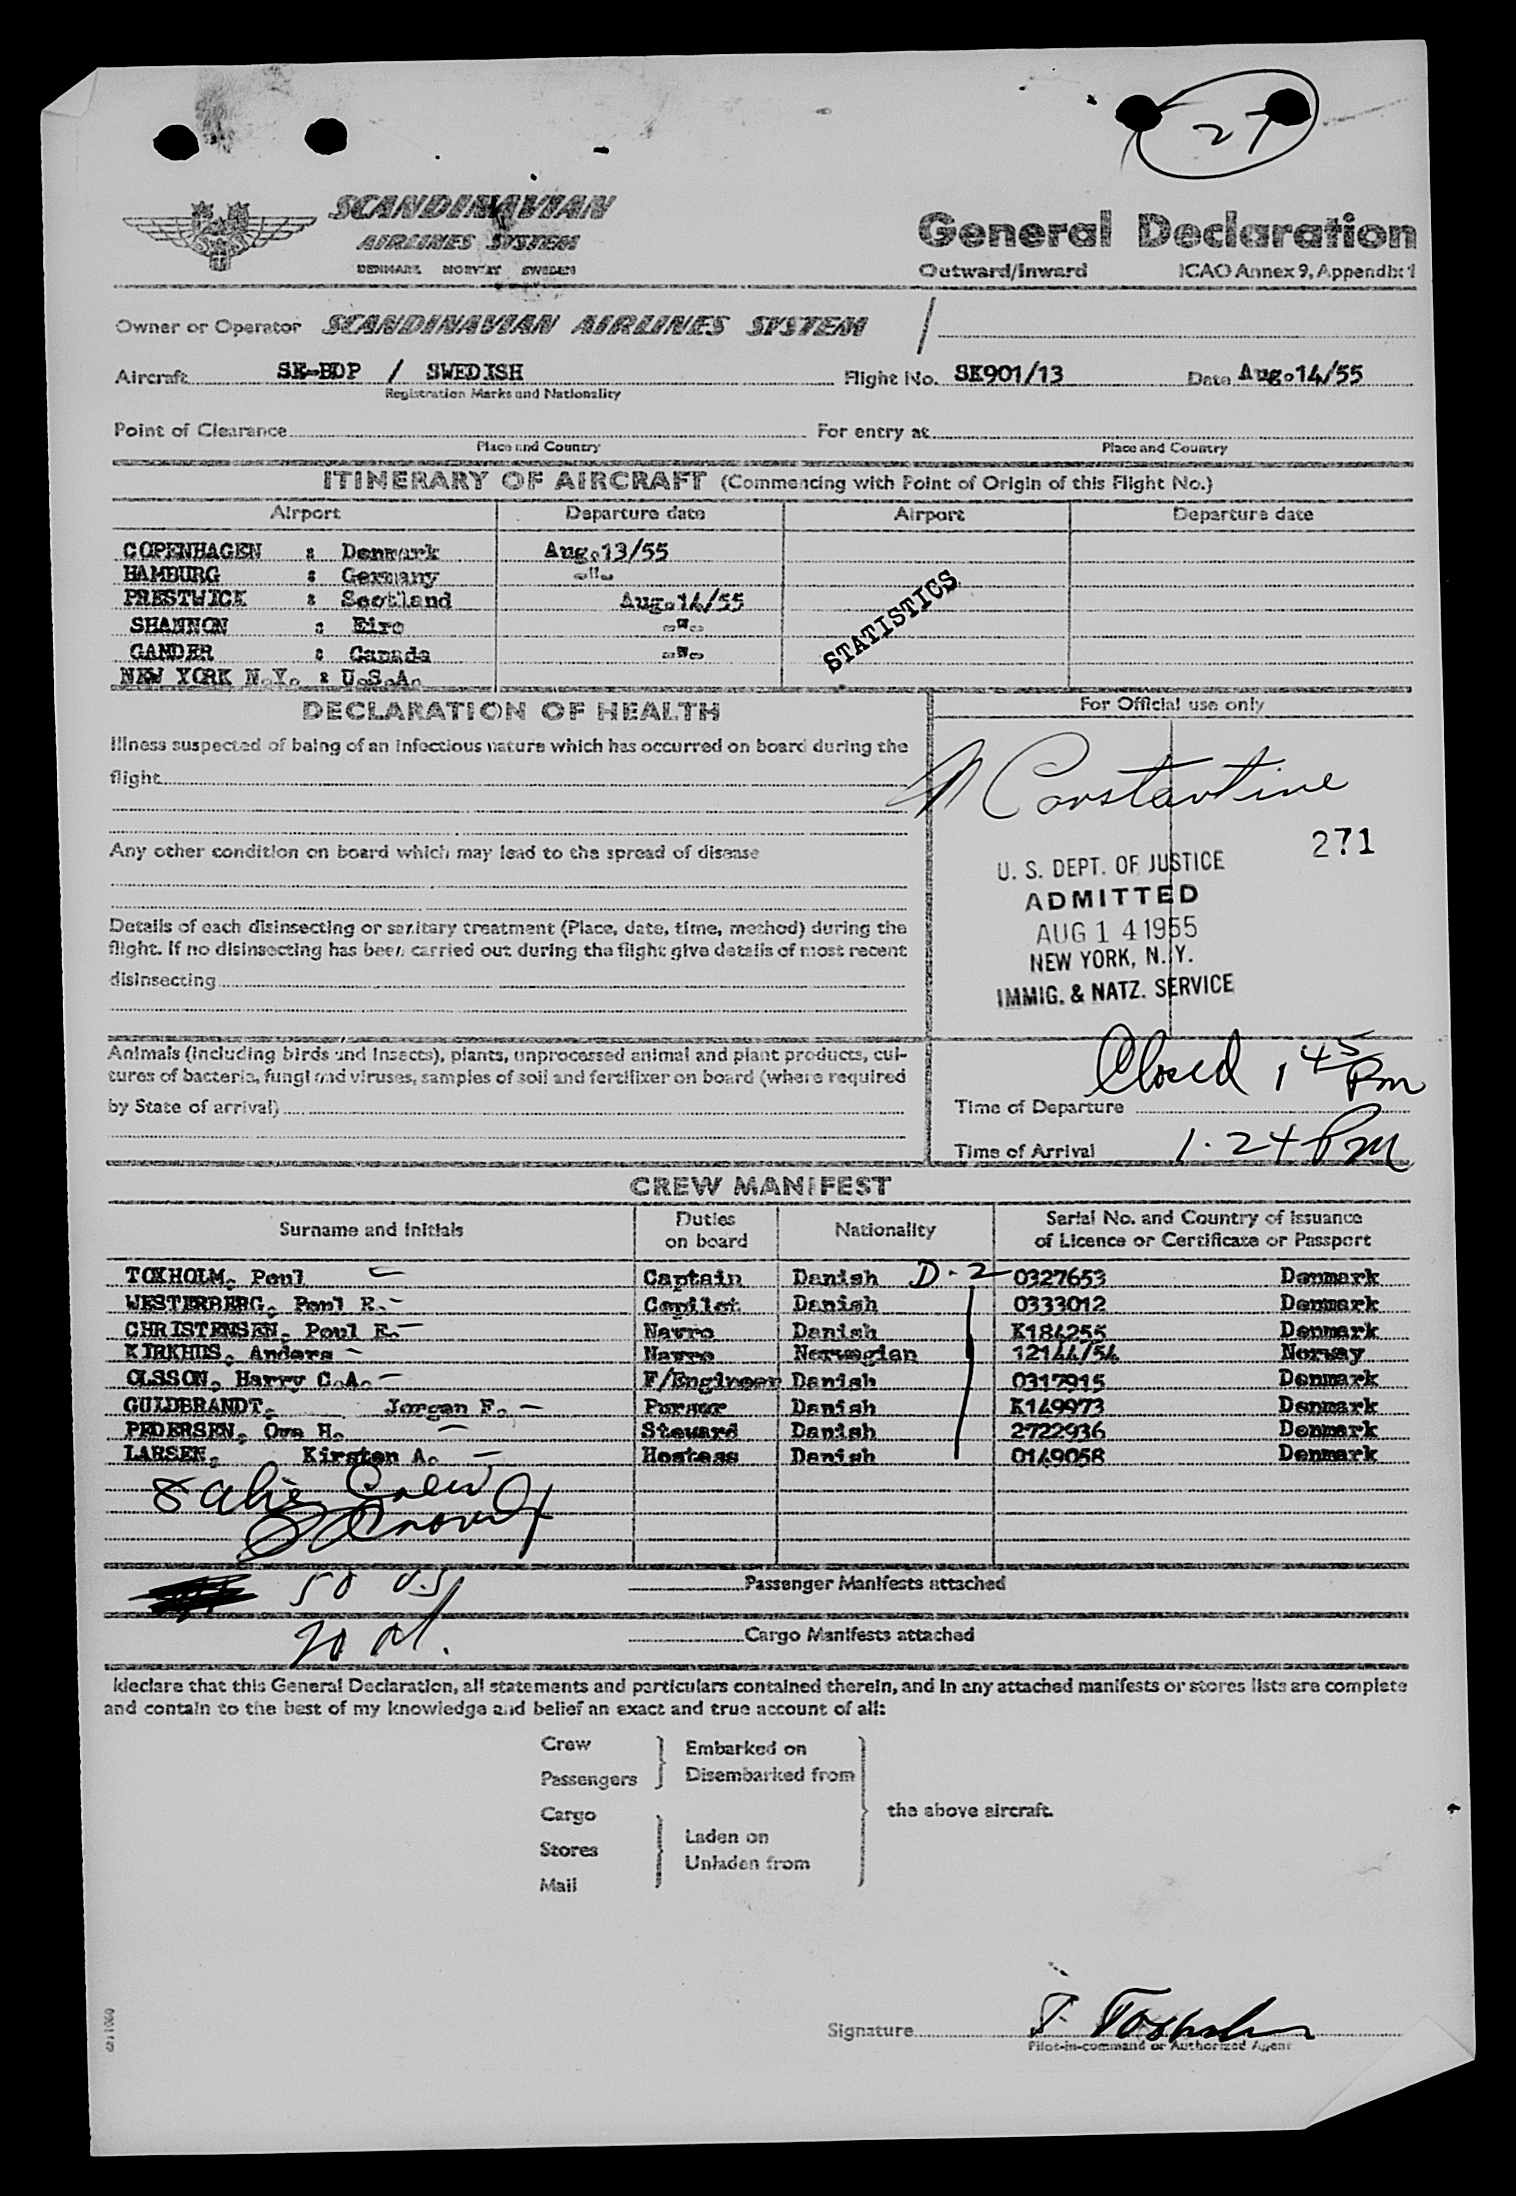 27
SCANDINAVIAN
AIRLINES SYSTEM
DENMARK NORWAY SWEDEN
General Declaration
Outward/Inward ICAO Annex 9, Appendix 1
Owner or Operator SCANDINAVIAN AIRLINES SYSTEM /
Aircraft SE-BDP / SWEDISH Flight No. SK901/13 Date Aug.14/55
Registration Marks and Nationality
Point of Clearance For entry at
Place and Country Place and Country
ITINERARY OF AIRCRAFT (Commencing with Point of Origin of this Flight No.)
Airport Departure date Airport Departure date
COPENHAGEN : Denmark Aug.13/55
HAMBURG : Germany -"-
PRESTWICK : Scotland Aug.14/55
SHANNON : Eire -"-
GANDER : Canada -"-
NEW YORK N.Y. : U.S.A.
STATISTICS
DECLARATION OF HEALTH
Illness suspected of being of an infectious nature which has occurred on board during the
flight
Any other condition on board which may lead to the spread of disease
Details of each disinsecting or sanitary treatment (Place, date, time, method) during the
flight. If no disinsecting has been carried out during the flight give details of most recent
disinsecting
Animals (including birds and insects), plants, unprocessed animal and plant products, cul-
tures of bacteria, fungi and viruses, samples of soil and fertilizer on board (where required
by State of arrival)
For Official use only
Constantine
271
U. S. DEPT. OF JUSTICE
ADMITTED
AUG 14 1955
NEW YORK, N. Y.
IMMIG. & NATZ. SERVICE
Closed 1 45 Pm
Time of Departure
Time of Arrival 1.24 PM
CREW MANIFEST
Surname and Initials Duties on board Nationality Serial No. and Country of Issuance of Licence or Certificate or Passport
TOXHOLM, Poul Captain Danish D-2 0327653 Denmark
WESTERBERG, Poul E. Copilot Danish 0333012 Denmark
CHRISTENSEN, Poul E. Navro Danish K184255 Denmark
KIRKHUS, Anders Navro Norwegian 12144/54 Norway
OLSSON, Harry C.A. F/Engineer Danish 0317915 Denmark
GULDBRANDT, Jorgen F. Purser Danish K149973 Denmark
PEDERSEN, Ove H. Steward Danish 2722936 Denmark
LARSEN, Kirsten A. Hostess Danish 0149058 Denmark
8 alien Crew
50 U.S
Passenger Manifests attached
Cargo Manifests attached
I declare that this General Declaration, all statements and particulars contained therein, and in any attached manifests or stores lists are complete
and contain to the best of my knowledge and belief an exact and true account of all:
Crew
Passengers
Embarked on
Disembarked from
Cargo
Stores
Mail
Laden on
Unladen from
the above aircraft.
Signature P. Toxholm
Pilot-in-command or Authorized Agent